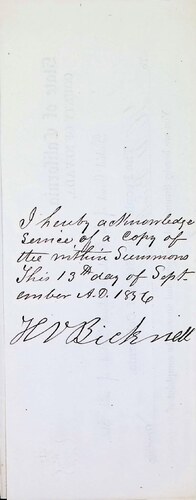 I hereby acknowledge
Service of a Copy of
the within Summons
This 13th day of Sept
ember A.D. 1886
H V Bicknell